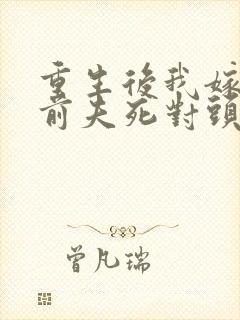 重生後我嫁
前夫死對頭
曾凡瑞